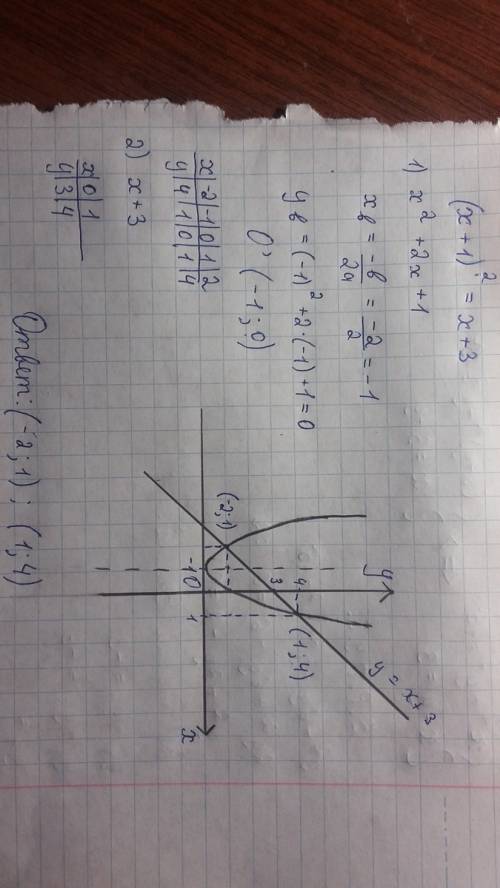 (x+1)² = x+3
1) x² + 2x + 1
xв = -в/2a = -2/2 = -1
yв = (-1)² + 2·(-1) + 1 = 0
O' (-1; 0)
x | -2 | -1 | 0 | 1 | 2
y | 4 | 1 | 0 | 1 | 4
2) x + 3
x | 0 | 1
y | 3 | 4
y
y = x+3
4
(1; 4)
3
(-2; 1)
-1
0
1
x
Ответ: (-2; 1) ; (1; 4)